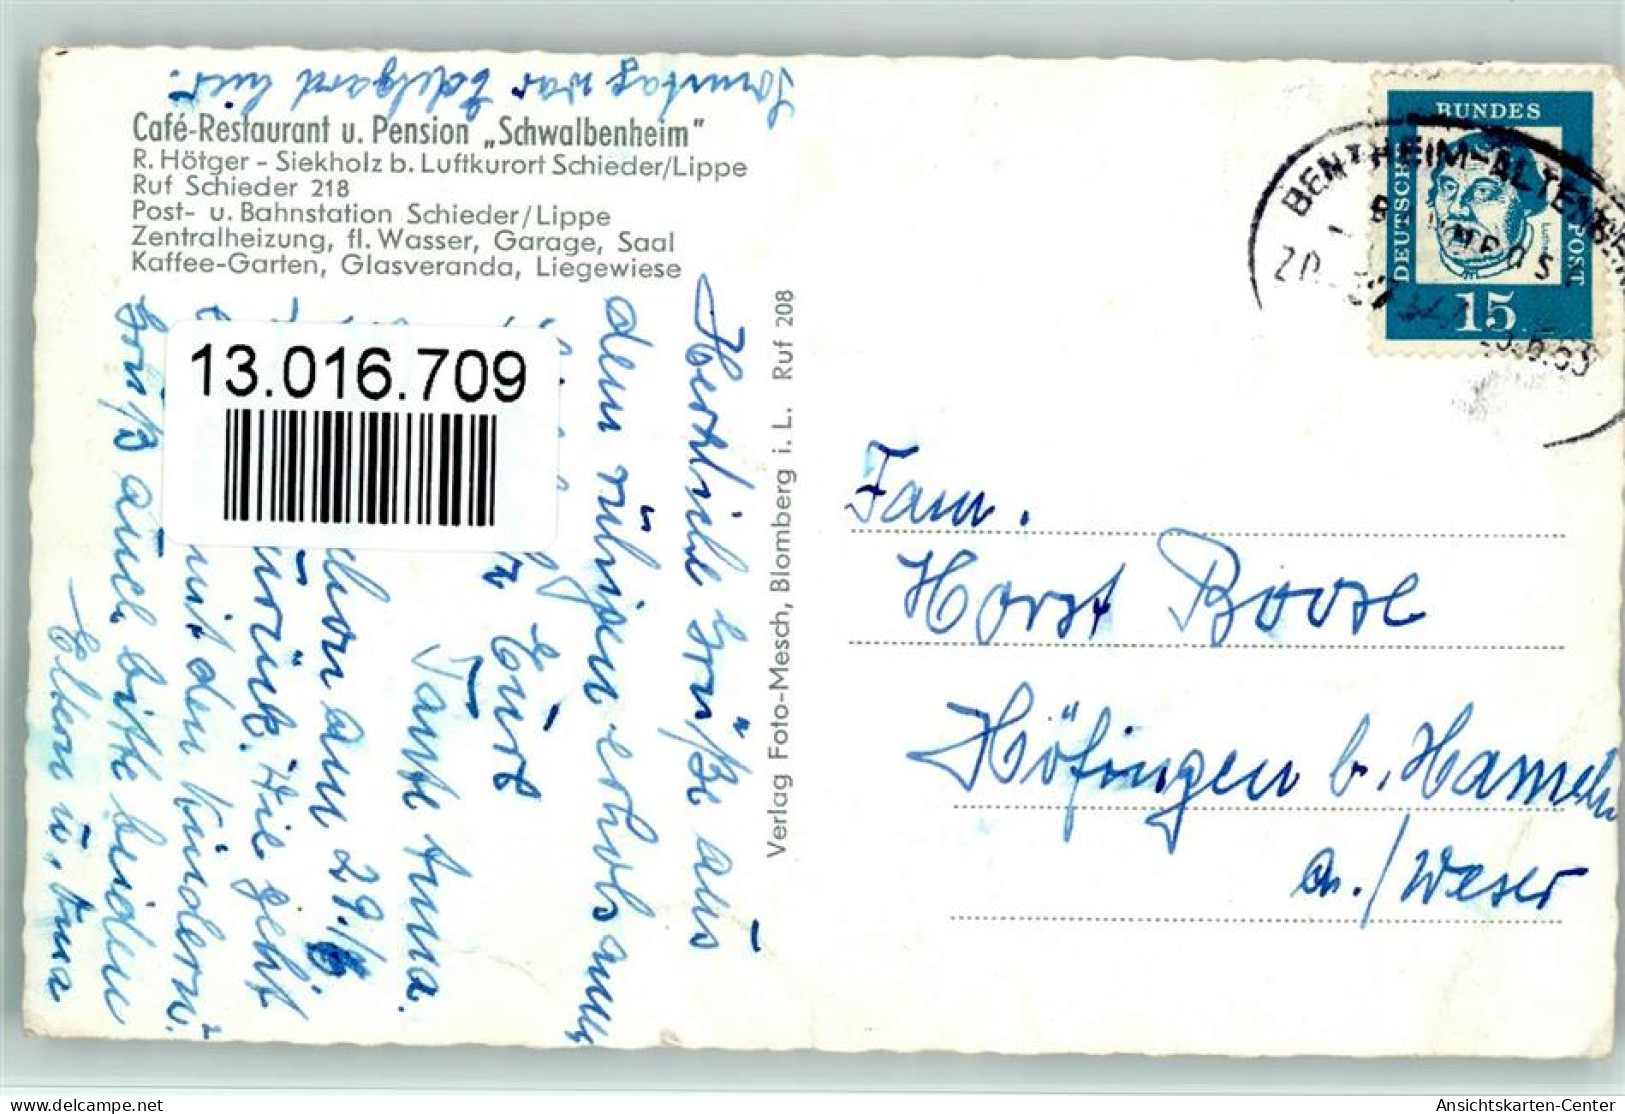 Sonntag war Edelgard hier.
Café-Restaurant u. Pension „Schwalbenheim"
R. Hötger - Siekholz b. Luftkurort Schieder/Lippe
Ruf Schieder 218
Post- u. Bahnstation Schieder/Lippe
Zentralheizung, fl. Wasser, Garage, Saal
Kaffee-Garten, Glasveranda, Liegewiese
Herzliche Grüße aus
dem ruhigen erholsamen
Eure
Tante Anna.
schon am 29./6
zurück. Wie geht
mit den Kindern?
Grüß auch bitte beiden
Eltern u.
13.016.709
Verlag Foto-Mesch, Blomberg i. L. Ruf 208
BUNDES
DEUTSCHE
POST
Luther
15
BENTHEIM-ALTENBEKEN
BAHNPOST
Fam.
Horst Boose
Höfingen b. Hameln
a./Weser
www.delcampe.net
Ansichtskarten-Center